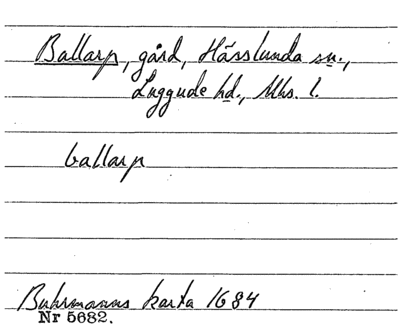 Ballarp, gård, Hässlunda sn.,
Luggude hd., Mhs. l.
ballarp
Buhrmanns karta 1684
Nr 5682.